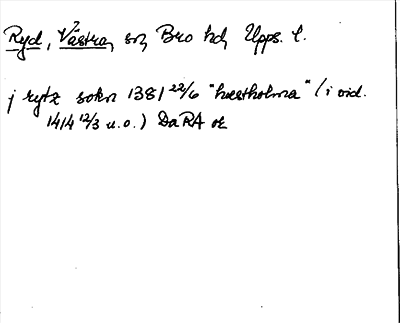 Ryd, Västra, sn, Bro hd, Upps. l.
j rytz sokn 1381 22/6 "hæstholma" (i vid.
1414 12/3 u.o.) DaRA or